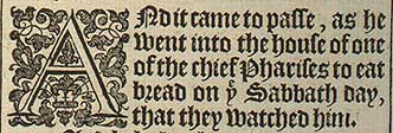 ANd it came to paſſe, as he
went into the houſe of one
of the chief Phariſes to eat
bread on yͤ Sabbath day,
that they watched him.